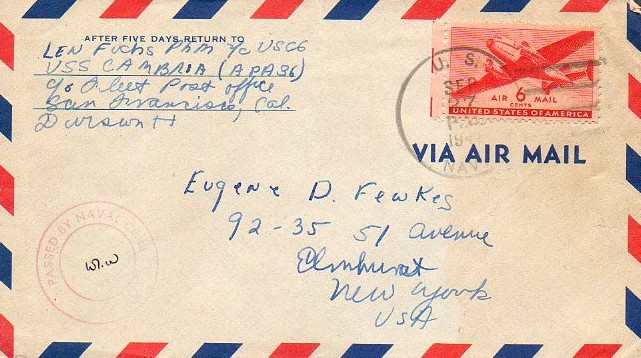 AFTER FIVE DAYS RETURN TO
LEN Fuchs PhM 1/c USCG
USS CAMBRIA (APA36)
c/o Fleet Post office
San Fransisco, Cal.
Division H
U. S.
SEP
27
NAVY
AIR 6 MAIL
CENTS
UNITED STATES OF AMERICA
VIA AIR MAIL
Eugene D. Fewkes
92-35 51 avenue
Elmhurst
New York
USA
PASSED BY NAVAL
W.W